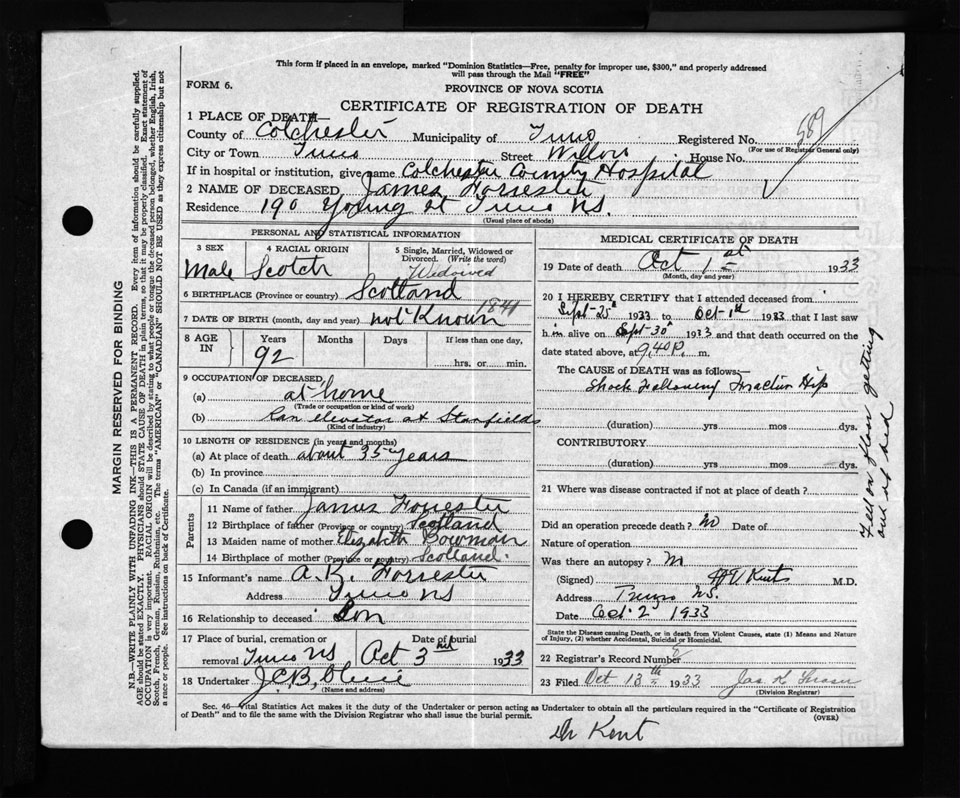 This form if placed in an envelope, marked "Dominion Statistics—Free, penalty for improper use, $300," and properly addressed
will pass through the Mail "FREE"
FORM 6.
PROVINCE OF NOVA SCOTIA
CERTIFICATE OF REGISTRATION OF DEATH
589
1 PLACE OF DEATH—
County of Colchester Municipality of Truro Registered No.
(For use of Registrar General only)
City or Town Truro Street Willow House No.
If in hospital or institution, give name Colchester County Hospital
2 NAME OF DECEASED James Forrester
Residence 190 Young st Truro NS.
(Usual place of abode)
PERSONAL AND STATISTICAL INFORMATION
3 SEX
4 RACIAL ORIGIN
5 Single, Married, Widowed or Divorced. (Write the word)
Male Scotch Widowed
6 BIRTHPLACE (Province or country) Scotland
7 DATE OF BIRTH (month, day and year) not Known 1841
8 AGE IN
Years Months Days If less than one day,
92 hrs. or min.
9 OCCUPATION OF DECEASED
(a) at home
(Trade or occupation or kind of work)
(b) Ran elevator at Stanfields
(Kind of industry)
10 LENGTH OF RESIDENCE (in years and months)
(a) At place of death about 35 years
(b) In province
(c) In Canada (if an immigrant)
Parents
11 Name of father James Forrester
12 Birthplace of father (Province or country) Scotland
13 Maiden name of mother Elizabeth Bowman
14 Birthplace of mother (Province or country) Scotland
15 Informant's name A. R. Forrester
Address Truro NS
16 Relationship to deceased Son
17 Place of burial, cremation or removal Truro NS
Date of burial
Oct 3rd 1933
18 Undertaker J.C.B.
(Name and address)
MEDICAL CERTIFICATE OF DEATH
19 Date of death Oct 1st 1933
(Month, day and year)
20 I HEREBY CERTIFY that I attended deceased from
Sept-25th 1933 to Oct-1st 1933 that I last saw
him alive on Sept-30th 1933 and that death occurred on the
date stated above, at 9,40 P. m.
The CAUSE of DEATH was as follows:—
Shock Following Fractur Hip
(duration) yrs mos dys.
CONTRIBUTORY
(duration) yrs mos dys.
21 Where was disease contracted if not at place of death?
Did an operation precede death? No Date of
Nature of operation
Was there an autopsy? No
(Signed) HV Kent M.D.
Address Truro NS.
Date Oct. 2 1933
State the Disease causing Death, or in death from Violent Causes, state (1) Means and Nature
of Injury, (2) whether Accidental, Suicidal or Homicidal.
22 Registrar's Record Number
23 Filed Oct 13th 1933 Jas K Fraser
(Division Registrar)
Fell on floor getting
out of bed
Sec. 46—Vital Statistics Act makes it the duty of the Undertaker or person acting as Undertaker to obtain all the particulars required in the "Certificate of Registration
of Death" and to file the same with the Division Registrar who shall issue the burial permit.
(OVER)
Dr Kent
MARGIN RESERVED FOR BINDING
N.B.—WRITE PLAINLY WITH UNFADING INK—THIS IS A PERMANENT RECORD. Every item of information should be carefully supplied.
AGE should be stated EXACTLY. PHYSICIANS should STATE CAUSE OF DEATH in plain terms, so that it may be properly classified. Exact statement of
OCCUPATION is very important. RACIAL ORIGIN will be described by stating to what people or tongue the deceased person belonged, whether English, Irish,
Scotch, French, German, Russian, Ruthenian, etc. The terms "AMERICAN" or "CANADIAN" SHOULD NOT BE USED as they express citizenship but not
a race or people. See instructions on back of Certificate.